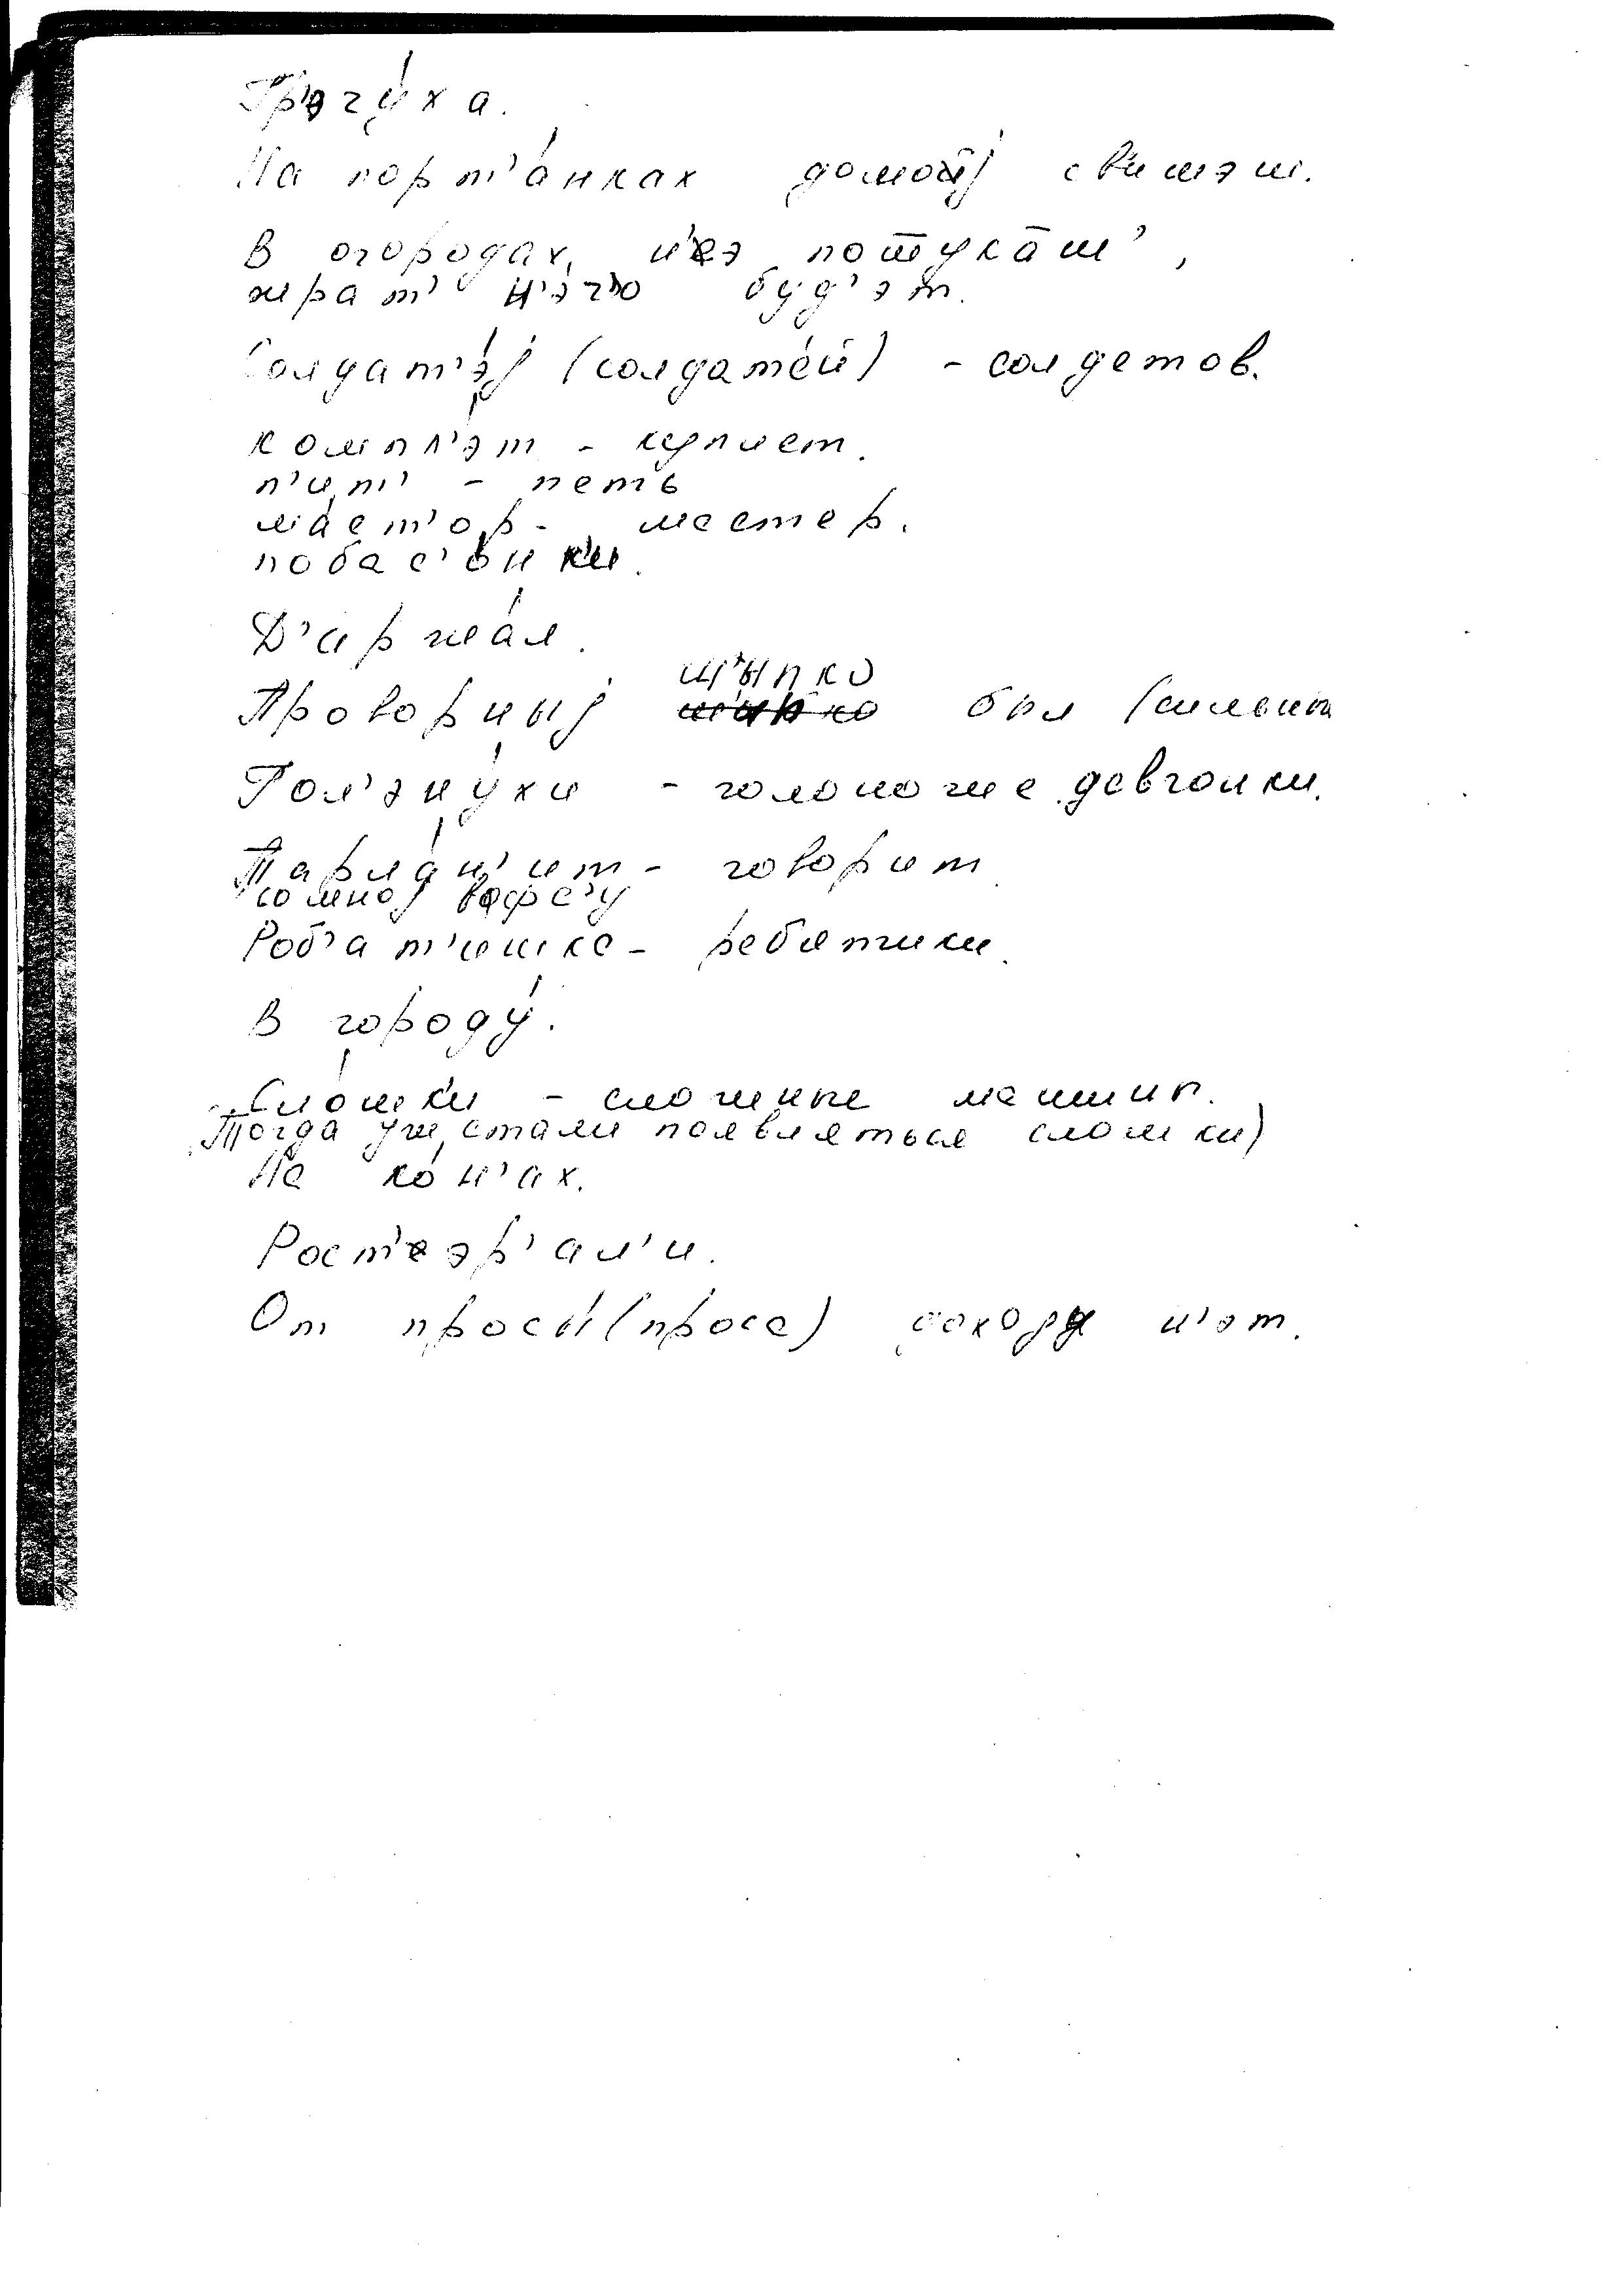 Гр'эчу́ха.
На порт'а́нках домо́j св'ищэш.
В огородах н'э потука́ш',
жрат' н'эч'о буд'эт.
Солдат'э́j (солдате́й) - солдатов.
комп'л'эт - купает.
п'ит' - петь
ма́ст'ор - мастер.
побас'о́нк'и.
Д'иржа́л.
Проворныj ш'ыпко был (сильны
Гол'эну́хи - голоногие девчонки.
Тарла́н'ит - говорит
со мноj
Роб'ат'ишка - ребятишки.
В городу́.
Сло́жк'и - сложные машины.
Тогда уж стали появляться сложки)
На ко́н'ах.
Рост'эр'ал'и.
От просы́ (проса) доходу н'эт.